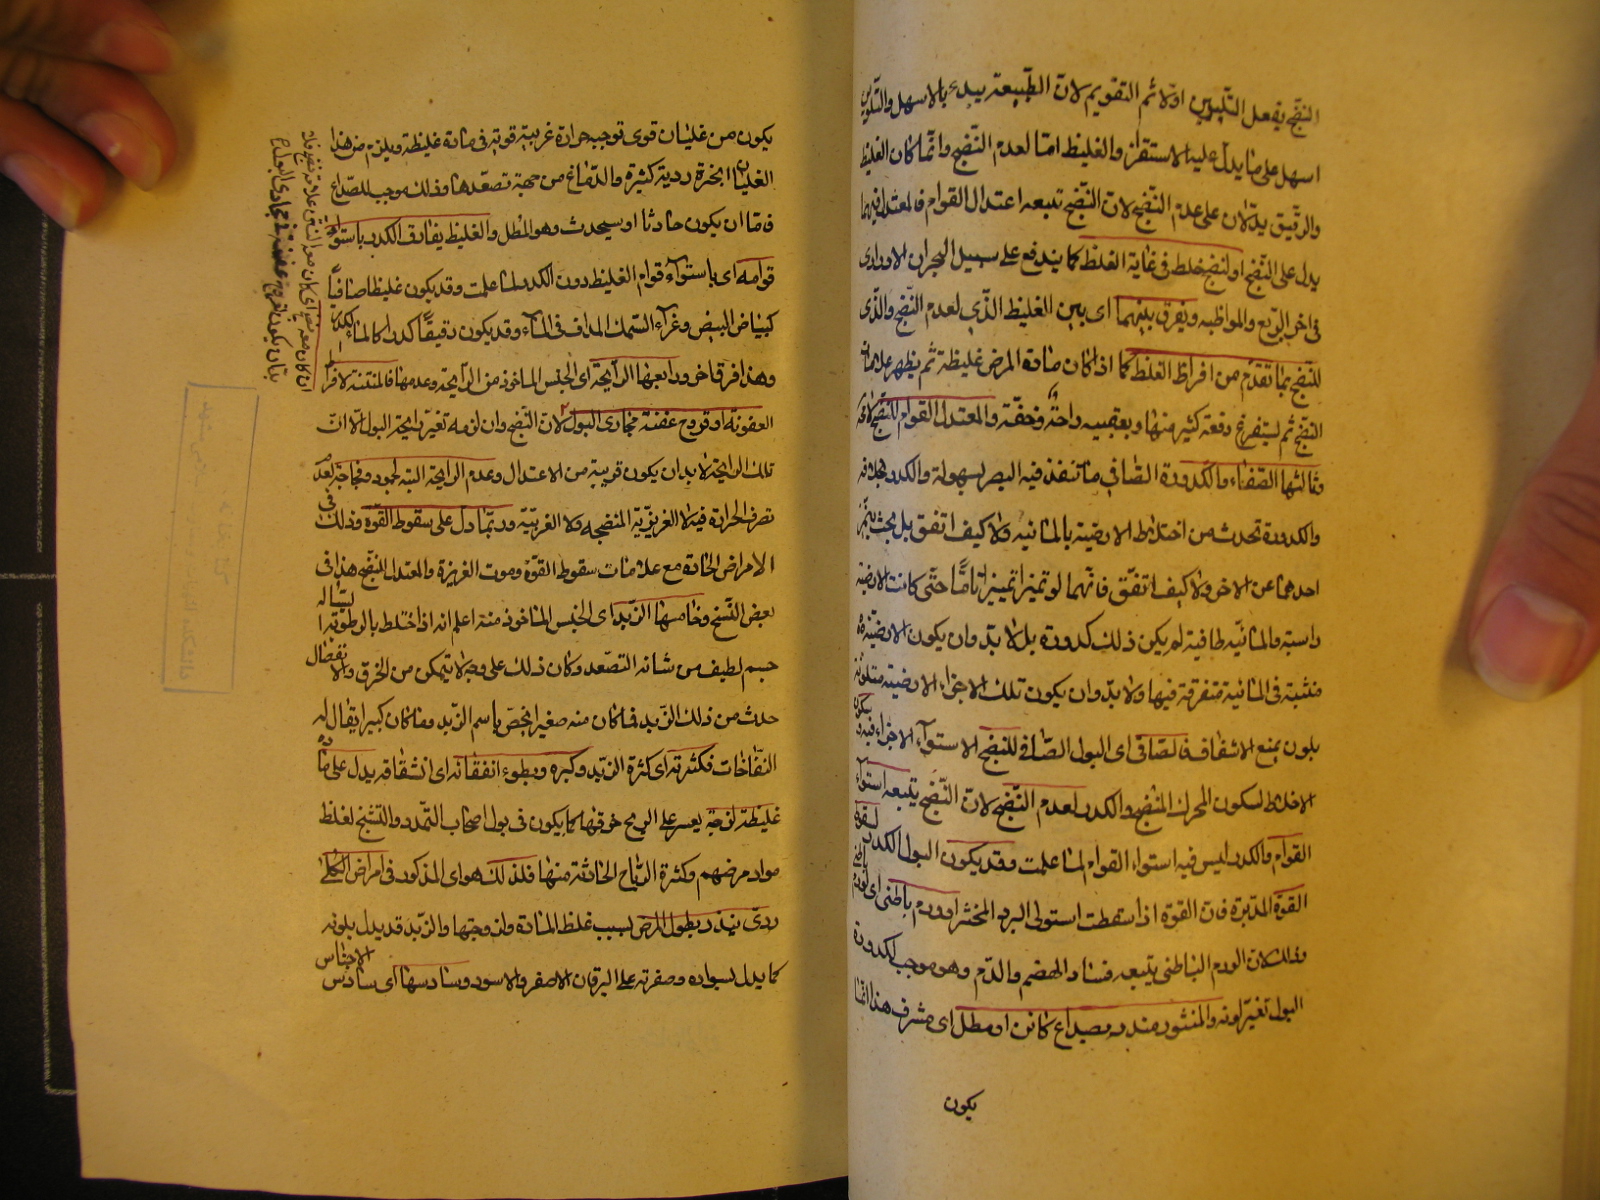 النضج يفعل التليين اولا ثم التقويم لان الطبيعة يبدء بالاسهل والتليين
اسهل على ما يدل عليه الاستقراء والغليظ اما لعدم النضج وانما كان الغليظ
والرقيق يدلان على عدم النضج لان النضج تتبعه اعتدال القوام فالمعتدل فيهما
يدل على النضج او لنضج خلط فى غاية الغلظ كما يندفع على سبيل البحران الادرارى
فى اخر الربع والمواظبه ويفرق بينهما اى بين الغليظ الذى لعدم النضج والذى
للنضج بما تقدم من افراط الغلظ كما اذا كان مادة المرض غليظة ثم يظهر علامات
النضج ثم ليستفرغ دفعة كثير منها ويعقبه راحة وخفة والمعتدل القوام للنضج
وثالثها الصفاء والكدورة الصافى ما تنفذ فيه البصر بسهولة والكدر بخلافه
والكدورة تحدث من اختلاط الارضية بالمائية ولا كيف اتفق بل بحيث يتميز
احدهما عن الاخر ولا كيف اتفق فانهما لو تميزا تميزا تاما حتى كانت الارضية
راسبة والمائية طافية لم يكن ذلك كدورة بل لا بد وان يكون الارضية
منبثة فى المائية متفرقة فيها ولا بد وان يكون تلك الاجزاء الارضية متلونة
بلون يمنع الاشفاف فالصافى اى البول الصافى للنضج لاستواء الاجزاء فيه
الاخلاط لسكون المحرك المنضج والكدر لعدم النضج لان النضج يتبعه استواء
القوام والكدر ليس فيه استواء القوام لما علمت وقد يكون البول الكدر لسقوط
القوة المدبرة فان القوة اذا سقطت استولى البرد المخثر او ورم باطنى اى لورم باطنى
وذلك لان الورم الباطنى يتبعه فساد الهضم والدم وهو موجب لكدورة
البول تغير لونه والمنثور منذر بصداع كائن او مطل اى مشرف هذا انما
يكون
يكون من غليان قوى توجبه حرارة غريبة قوية فى مادة غليظة ويلزم من هذا
الغليان ابخرة ردية كثيرة والدماغ من جهة تصعدها وذلك موجب للصداع
فاما ان يكون حادثا او سيحدث وهو المطل والغليظ يفارق الكدر باستواء
قوامه اى باستواء قوام الغليظ دون الكدر لما علمت وقد يكون غليظا صافيا
كبياض البيض وغراء السمك المداف فى الماء وقد يكون رقيقا كدرا كالماء الكدر
وهذا فرق اخر ورابعها الرايحة اى الجنس الماخوذ من الرايحة وعدمها فالمنتنة لافراط
العفونة او قروح عفنة مجارى البول لان النضج وان لزمه تغير رايحة البول الا ان
تلك الرايحة لا بد ان يكون قريبة من الاعتدال وعدم الرايحة البتة لجمود وفجاجة لعدم
تصرف الحرارة فيه لا الغريزية المنضجه ولا الغريبيه وربما دل على سقوط القوة وذلك فى
الامراض الحادة مع علامات سقوط القوة وموت الغريزة والمعتدل للنضج هذا فى
بعض النسخ وخامسها الزبد اى الجنس الماخوذ منه اعلم انه اذا اختلط بالرطوبة
جسم لطيف من شانه التصعد وكان ذلك على وجه لا يتمكن من الخرق والانفصال
حدث من ذلك الزبد فما كان منه صغيرا يخص باسم الزبد وما كان كبيرا يقال له
النفاخات فكثرته اى كثرة الزبد وكبره وبطوء انفقائه اى انشقاقه يدل على مادة
غليظة لزجة يعسر على الريح خرقها كما يكون فى بول اصحاب التمدد والتشنج لغلظ
مواد مرضهم وكثرة الرياح الحادثة منها فلذلك هو اى المذكور فى امراض الكلى
ردى ينذر بطول المرض لسبب غلظ المادة ولزوجتها والزبد قد يدل بلونه
كما يدل بسواده وصفرته على اليرقان الاصفر والاسود وسادسها اى سادس الاجناس